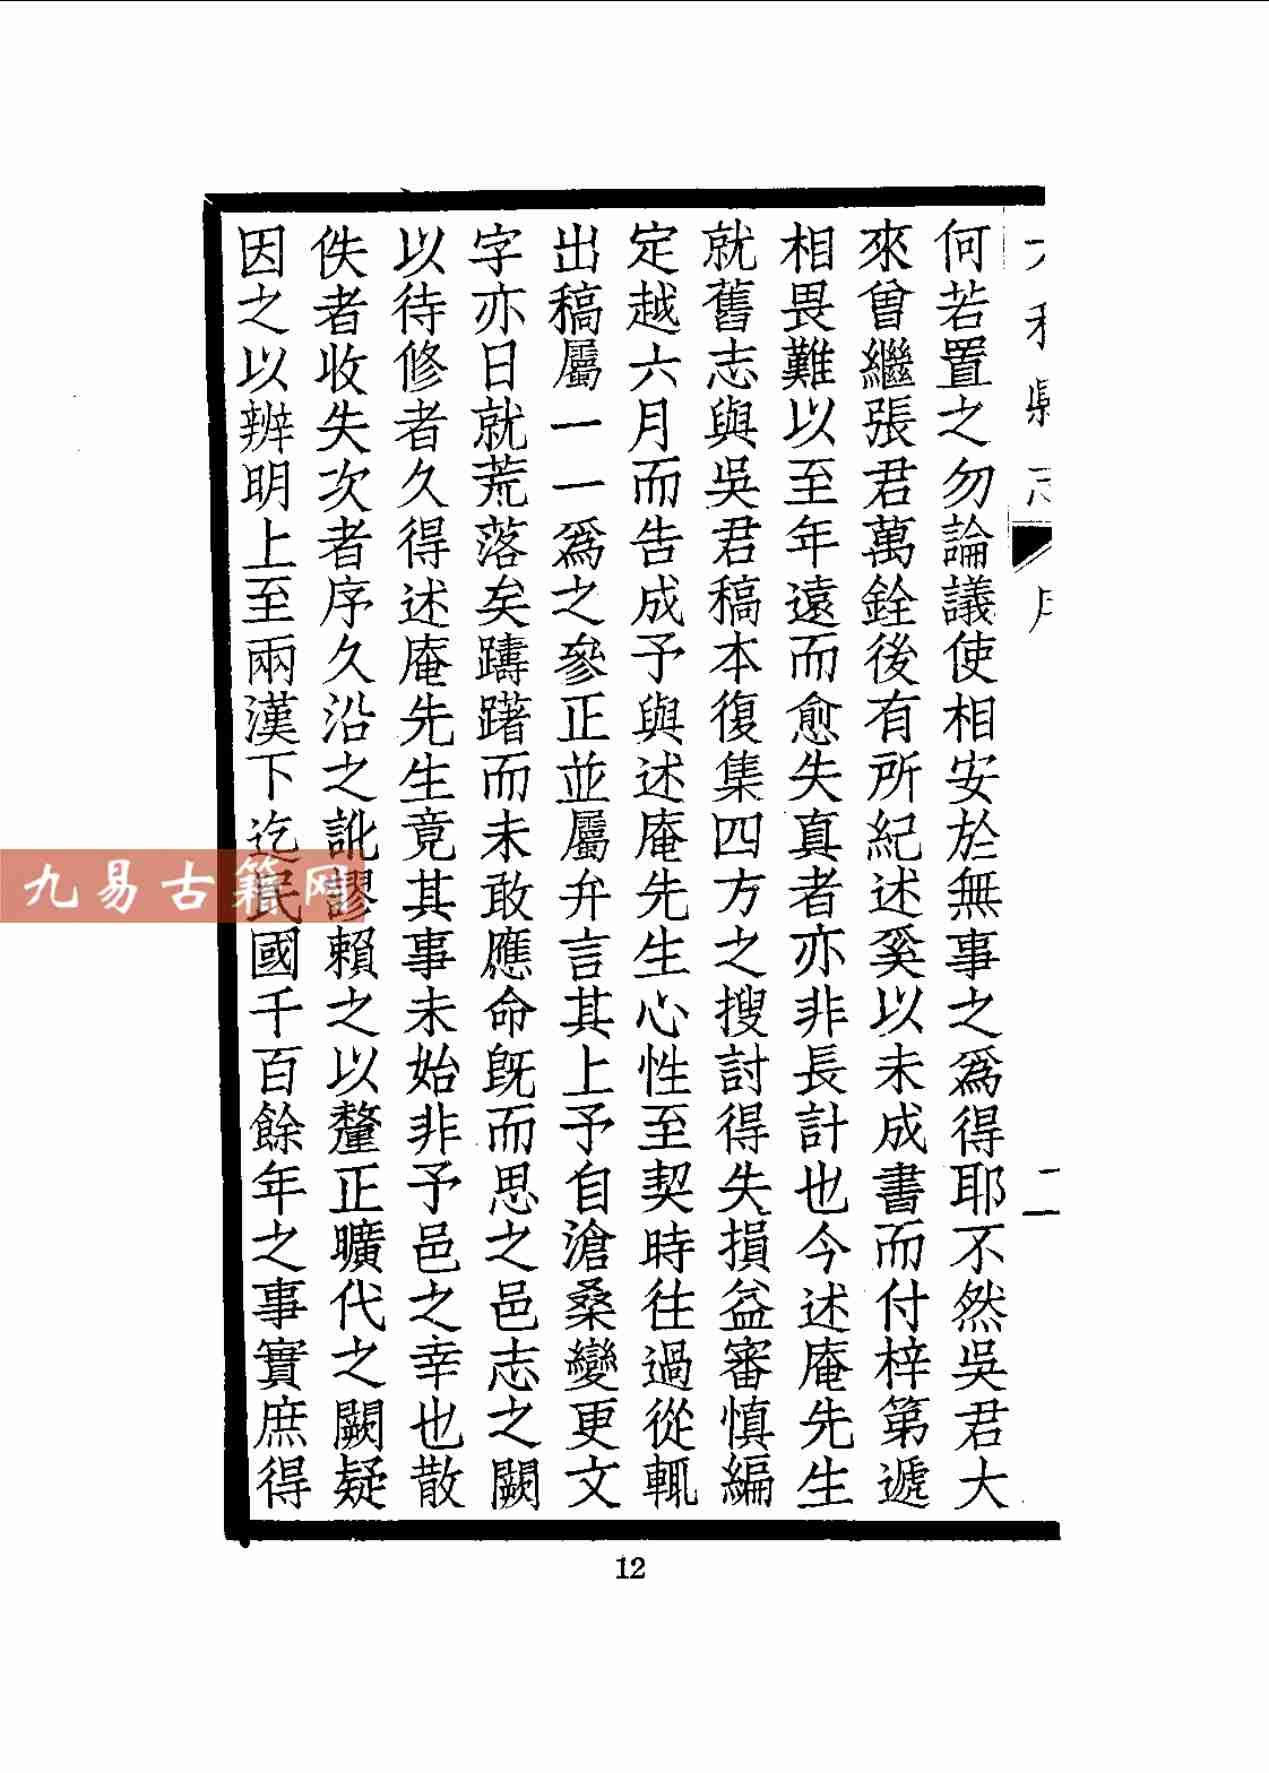 何若置之勿論議使相安於無事之爲得耶不然吳君大
來曾繼張君萬銓後有所紀述奚以未成書而付梓第遞
相畏難以至年遠而愈失真者亦非長計也今述庵先生
就舊志與吳君稿本復集四方之搜討得失損益審慎編
定越六月而告成予與述庵先生心性至契時往過從輒
出稿屬一一爲之參正並屬弁言其上予自滄桑變更文
字亦日就荒落矣躊躇而未敢應命旣而思之邑志之闕
以待修者久得述庵先生竟其事未始非予邑之幸也散
佚者收失次者序久沿之訛謬賴之以釐正曠代之闕疑
因之以辨明上至兩漢下迄民國千百餘年之事實庶得
二
12
九易古籍网